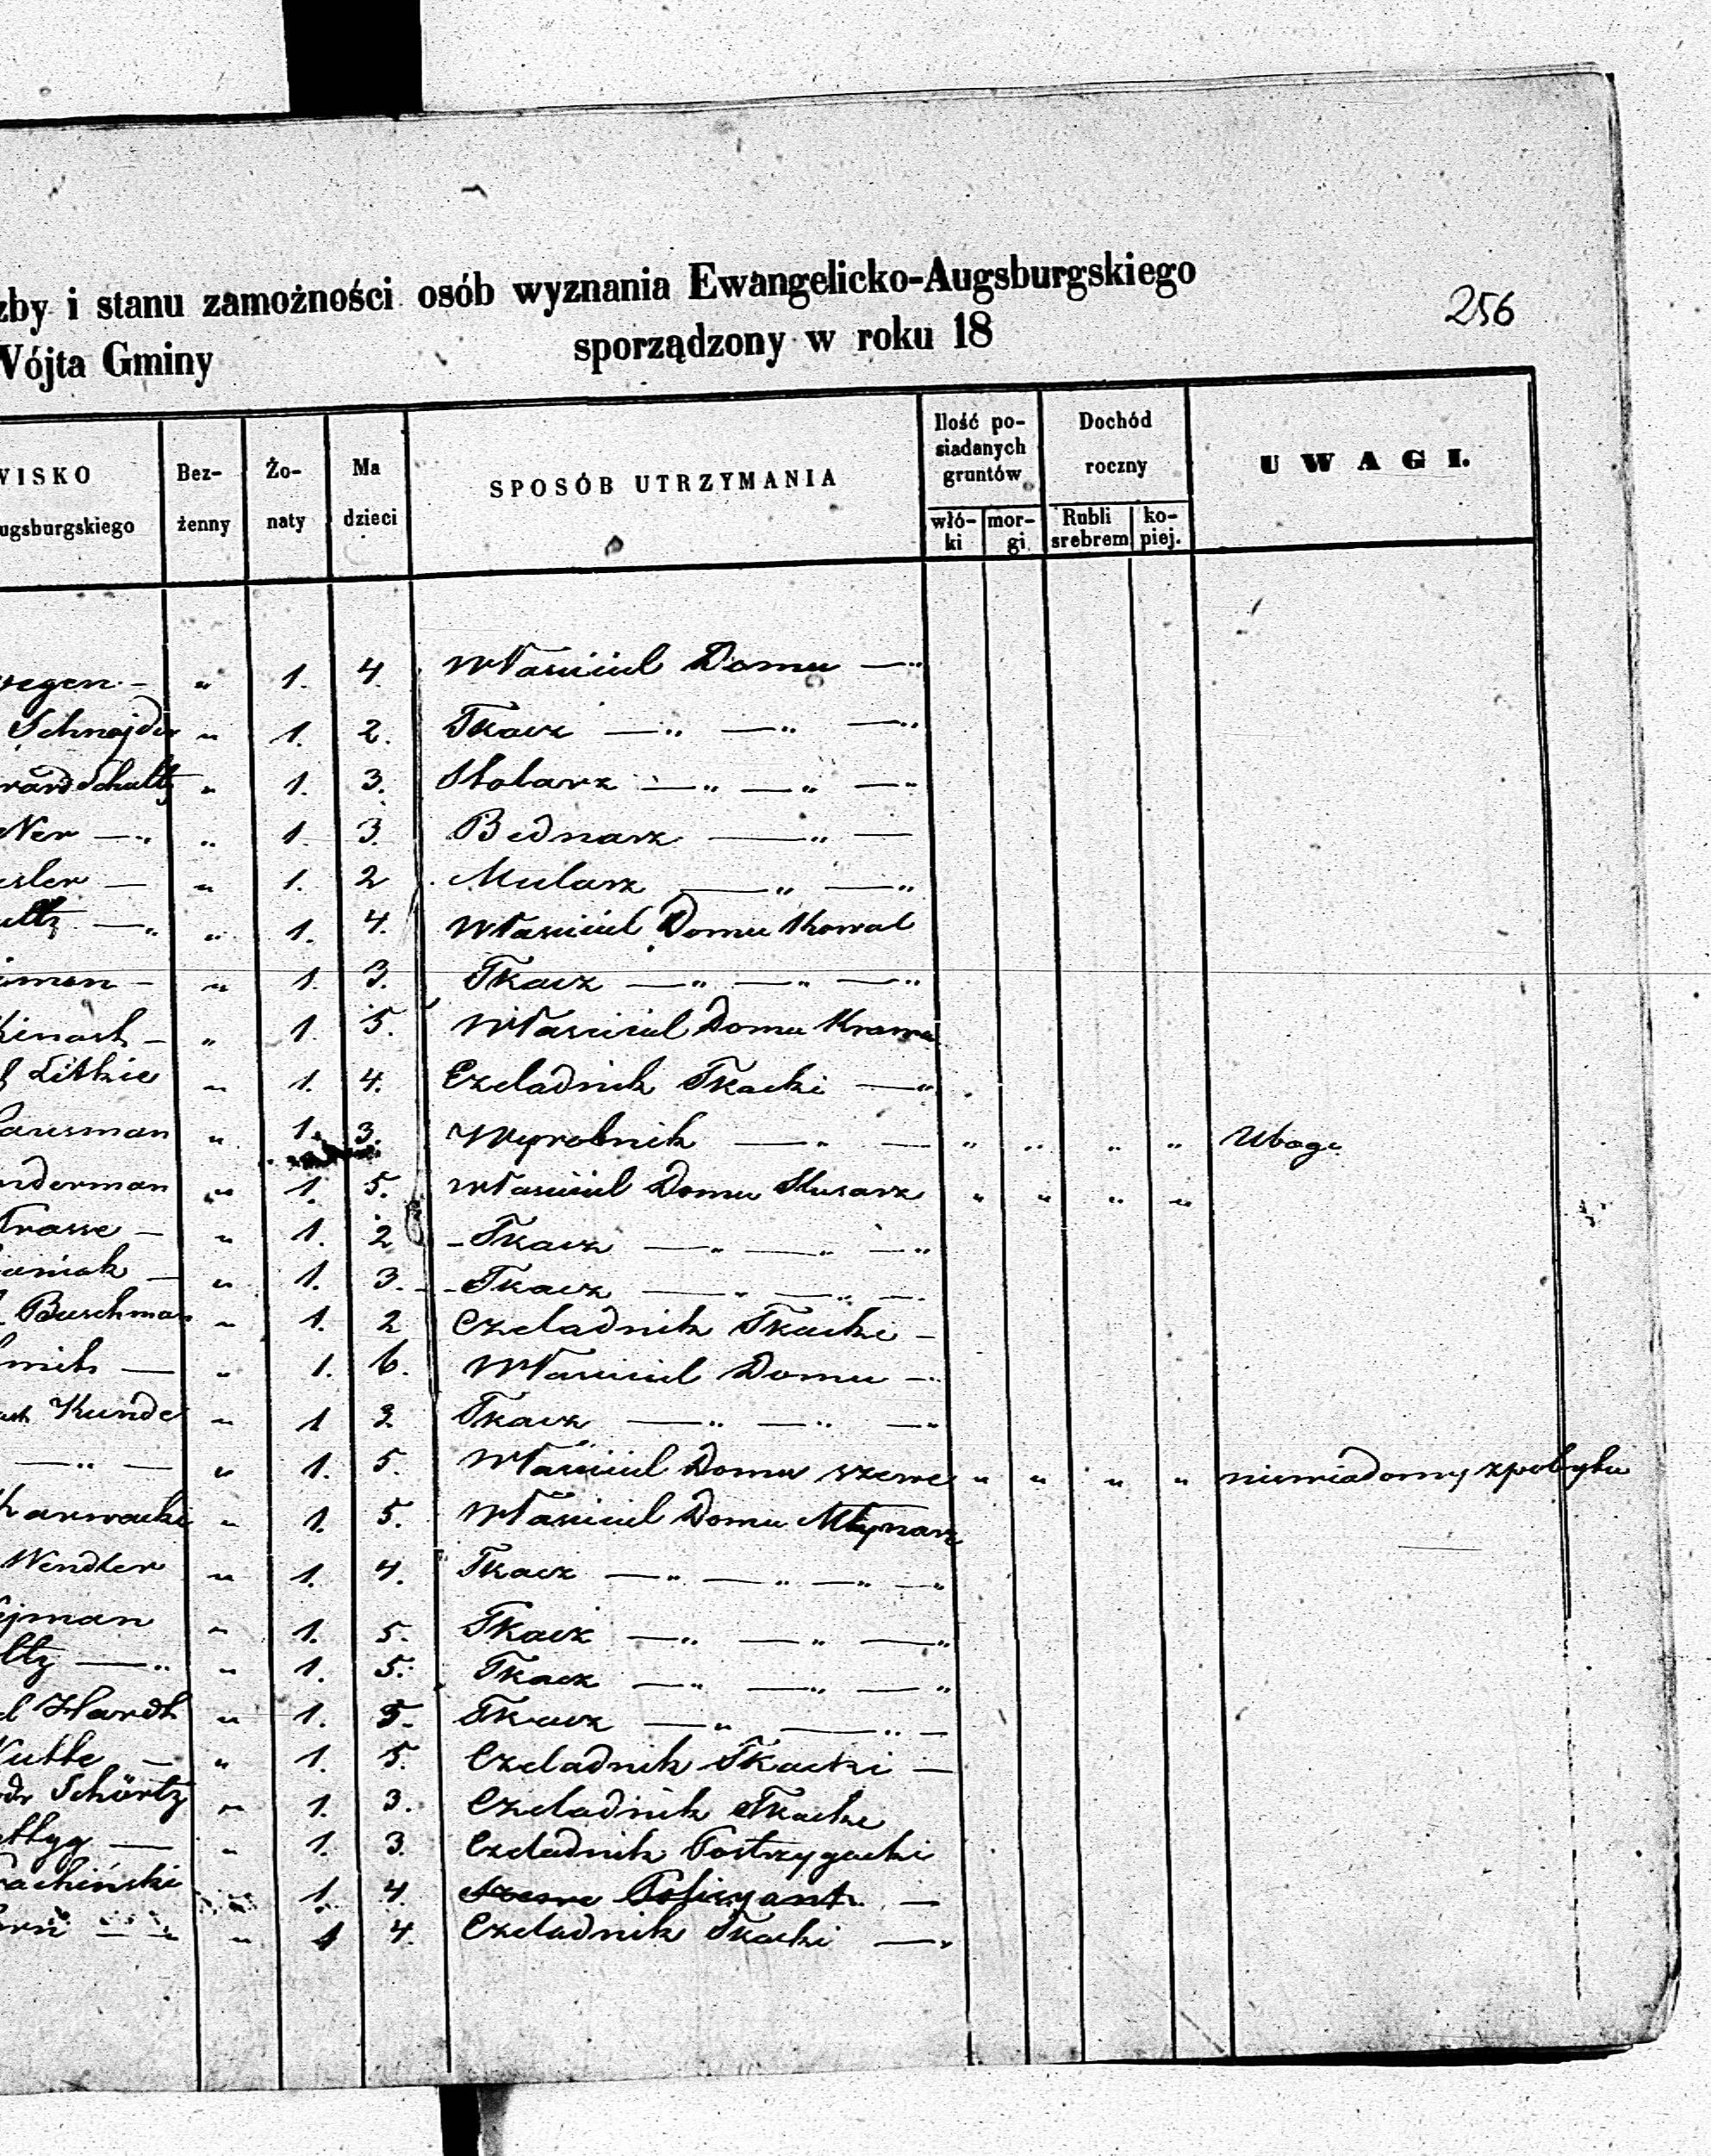 zby i stanu zamożności osób wyznania Ewangelicko-Augsburgskiego
256
Wójta Gminy sporządzony w roku 18
WISKO
ugsburgskiego
Bez-
żenny
Żo-
naty
Ma
dzieci
SPOSÓB UTRZYMANIA
Ilość po-
siadanych
gruntów
włó-
ki
mor-
gi
Dochód
roczny
Rubli
srebrem
ko-
piej.
UWAGI.
wegen - " 1. 4. Właściciel Domu — "
Schnejder " 1. 2. Tkacz — " — " — "
Schultz " 1. 3. Stolarz — " — " — "
Ner — " " 1. 3. Bednarz — " —
esler — " 1. 2 Mularz — " — "
ultz — " " 1. 4. Właściciel Domu Kowal
iman - " 1. 3. Tkacz — " — " — "
Kinast - " 1. 5. Właściciel Domu Krawe
Litkie " 1. 4. Czeladnik Tkacki — "
ausman " 1. 3. Wyrobnik — " — " " " " Ubogi
nderman " 1. 5. Właściciel Domu Slusarz " " " "
Krasse - " 1. 2 - Tkacz — " — " — "
aniak — " 1. 3. - Tkacz — " — " —
Buschman " 1. 2 Czeladnik Tkacki -
mith — " 1. 6. Właściciel Domu —
Kunde " 1 3 Tkacz — " — " — "
— " — " 1. 5. Właściciel Domu szewc " " " " niewiadomy z pobytu
Karwacki " 1. 5. Właściciel Domu Młynarz
Wendler " 1. 4. Tkacz — " — " — " — "
ejman " 1. 5. Tkacz — " — " — "
ltz — " " 1. 5. Tkacz — " — " — "
Hardt " 1. 5. Tkacz — " — " —
Kutte — " 1. 5. Czeladnik Tkacki —
Schörtz " 1. 3. Czeladnik Tkacki
ttyg — " 1. 3. Czeladnik Postrzygacki
achiński 1. 4. Policyant —
" 1 4. Czeladnik Tkacki — "